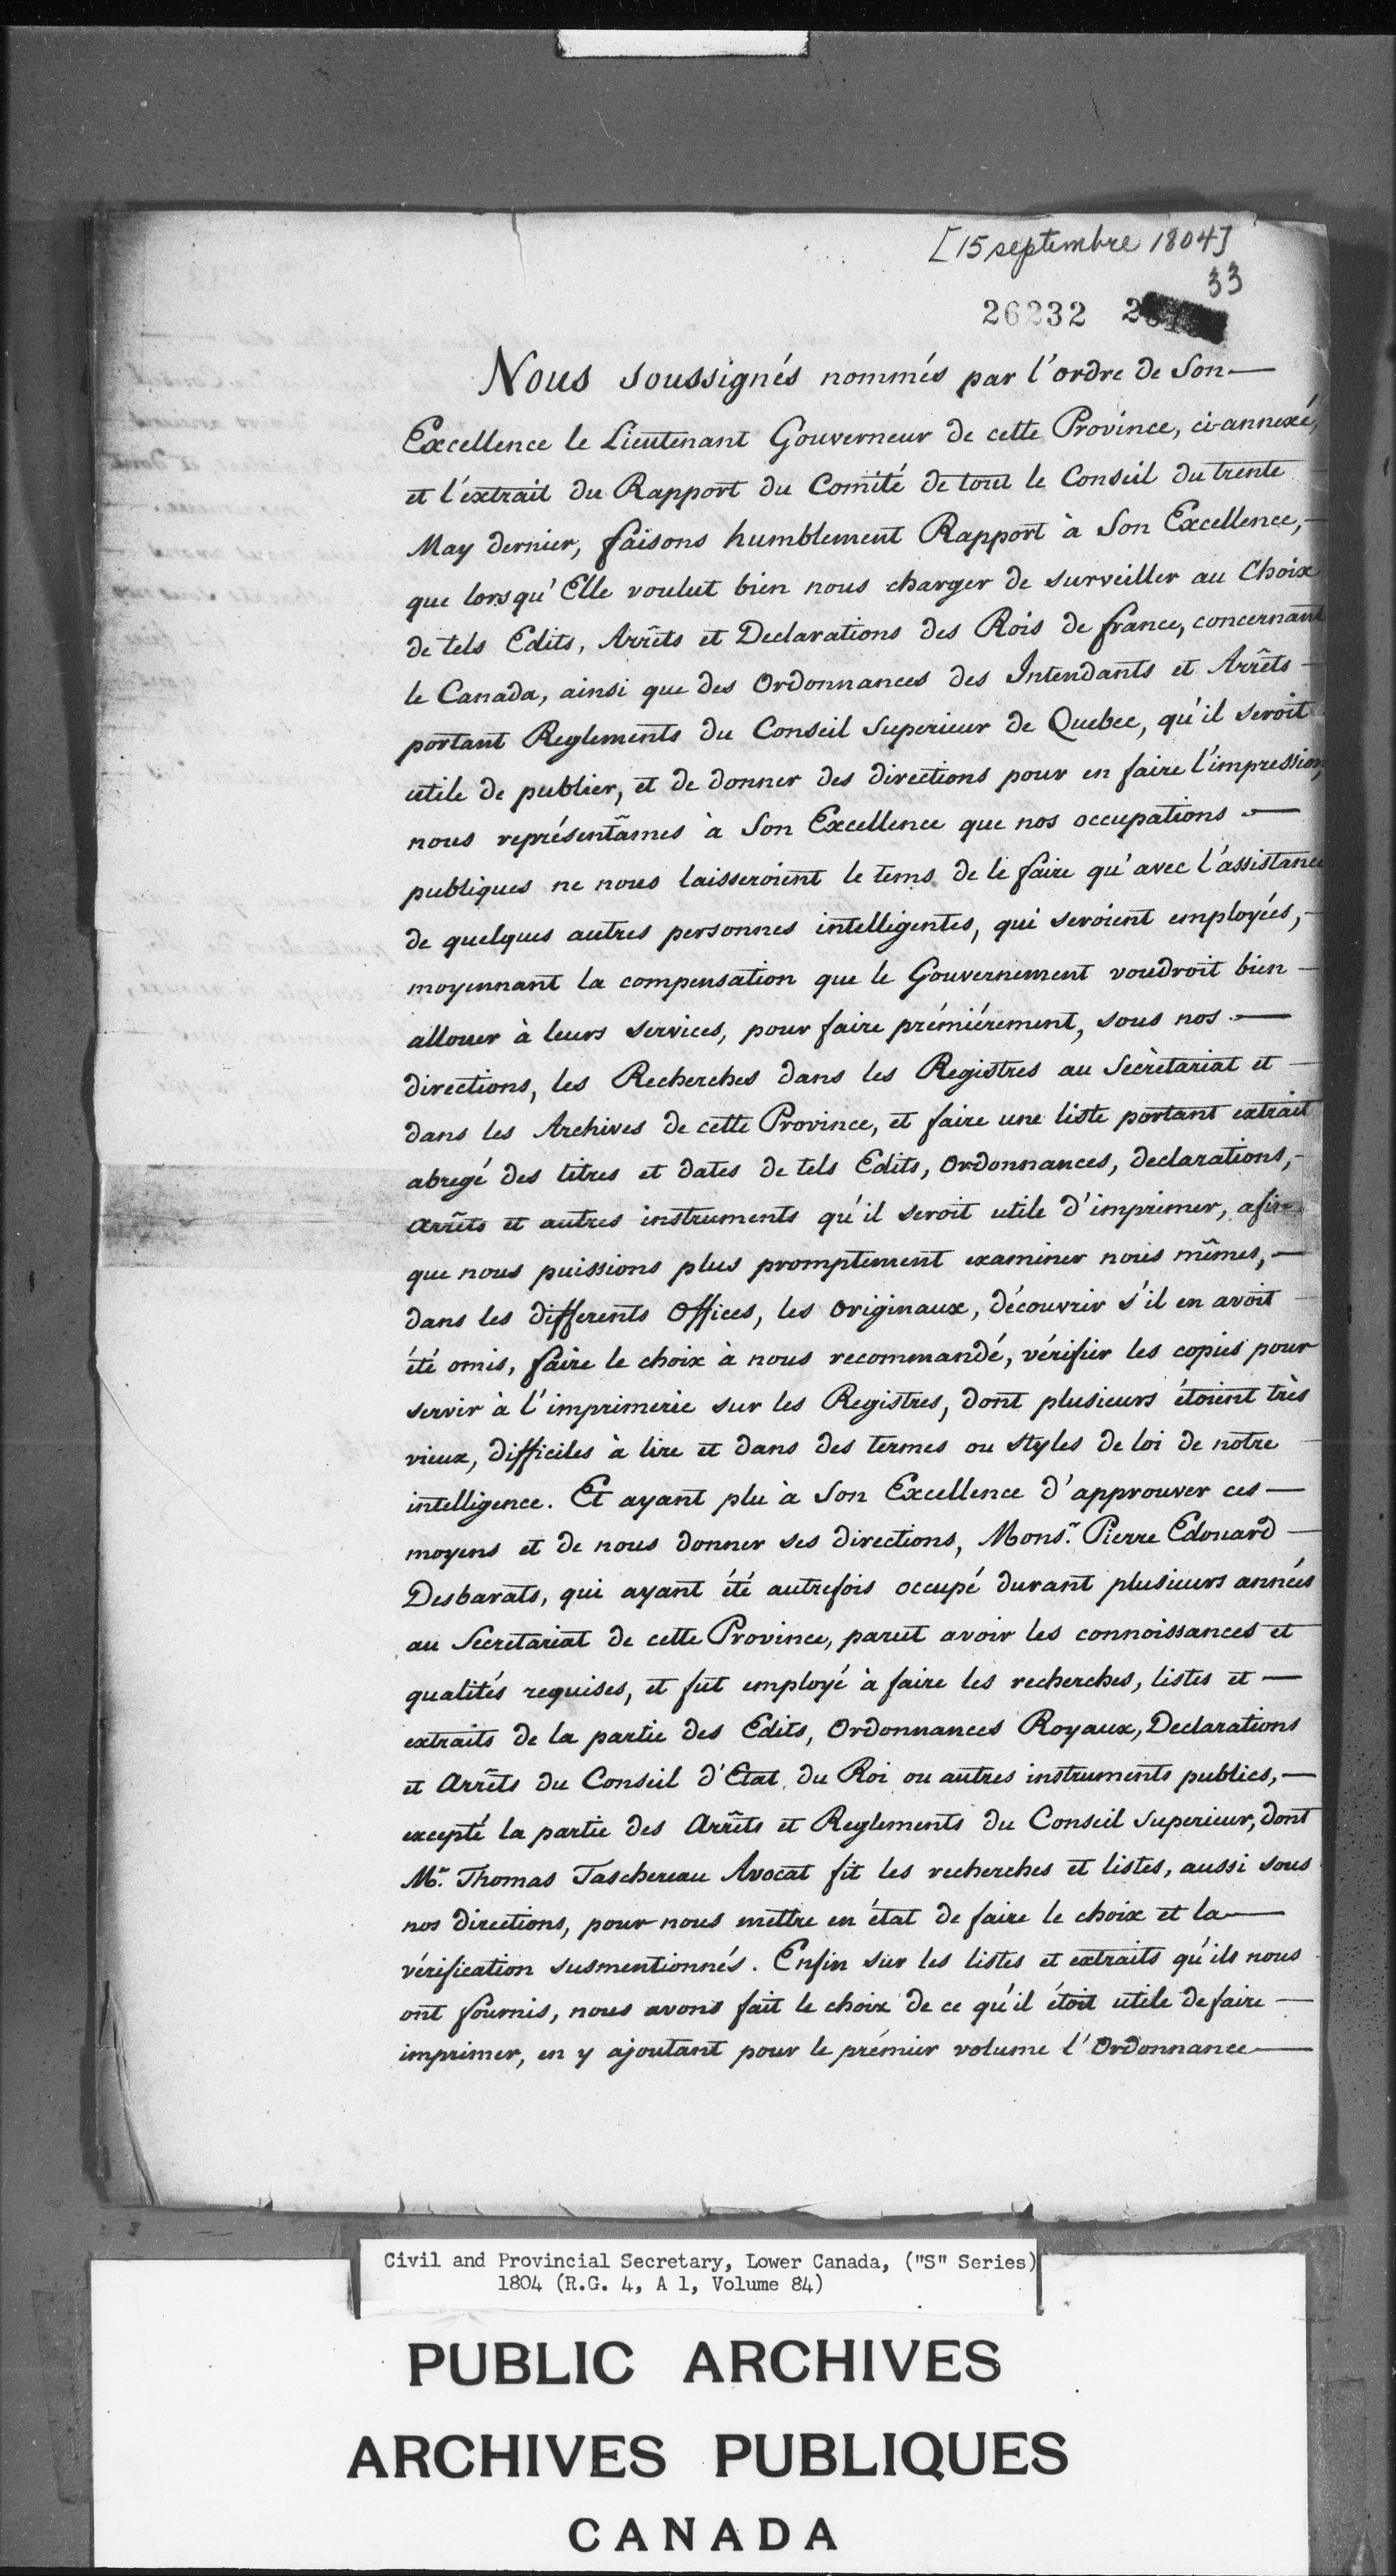 [15 septembre 1804]
33
26232
Nous soussignés nommés par l'ordre de Son —
Excellence le Lieutenant Gouverneur de cette Province, ci-annexé,
et l'extrait du Rapport du Comité de tout le Conseil du trente
May dernier, faisons humblement Rapport à Son Excellence, —
que lorsqu'Elle voulut bien nous charger de surveiller au Choix
de tels Edits, Arrêts et Declarations des Rois de france, concernant
le Canada, ainsi que des Ordonnances des Intendants et Arrêts —
portant Reglements du Conseil Superieur de Quebec, qu'il seroit
utile de publier, et de donner des directions pour en faire l'impression,
nous représentâmes à Son Excellence que nos occupations —
publiques ne nous laisseroient le tems de le faire qu'avec l'assistance
de quelques autres personnes intelligentes, qui seroient employées, —
moyennant la compensation que le Gouvernement voudroit bien —
allouer à leurs services, pour faire prémiérement, sous nos —
directions, les Recherches dans les Registres au Secrètariat et —
dans les Archives de cette Province, et faire une liste portant extrait
abregé des titres et dates de tels Edits, Ordonnances, declarations, —
arrêts et autres instruments qu'il seroit utile d'imprimer, afin
que nous puissions plus promptement examiner nous mêmes, —
dans les differents Offices, les Originaux, découvrir s'il en avoit —
été omis, faire le choix à nous recommandé, vérifier les copies pour
servir à l'imprimerie sur les Registres, dont plusieurs étoient très
vieux, difficiles à lire et dans des termes ou styles de loi de notre —
intelligence. Et ayant plu à Son Excellence d'approuver ces —
moyens et de nous donner ses directions, Monsr. Pierre Edouard —
Desbarats, qui ayant été autrefois occupé durant plusieurs années
au Secretariat de cette Province, parut avoir les connoissances et
qualités requises, et fut employé à faire les recherches, listes et —
extraits de la partie des Edits, Ordonnances Royaux, Declarations
et Arrêts du Conseil d'Etat du Roi ou autres instruments publics, —
excepté la partie des Arrêts et Reglements du Conseil Superieur, dont
Mr. Thomas Taschereau Avocat fit les recherches et listes, aussi sous
nos directions, pour nous mettre en état de faire le choix et la —
vérification susmentionnés. Enfin sur les listes et extraits qu'ils nous
ont fournis, nous avons fait le choix de ce qu'il étoit utile de faire —
imprimer, en y ajoutant pour le prémier volume l'Ordonnance —
Civil and Provincial Secretary, Lower Canada, ("S" Series)
1804 (R.G. 4, A 1, Volume 84)
PUBLIC ARCHIVES
ARCHIVES PUBLIQUES
CANADA